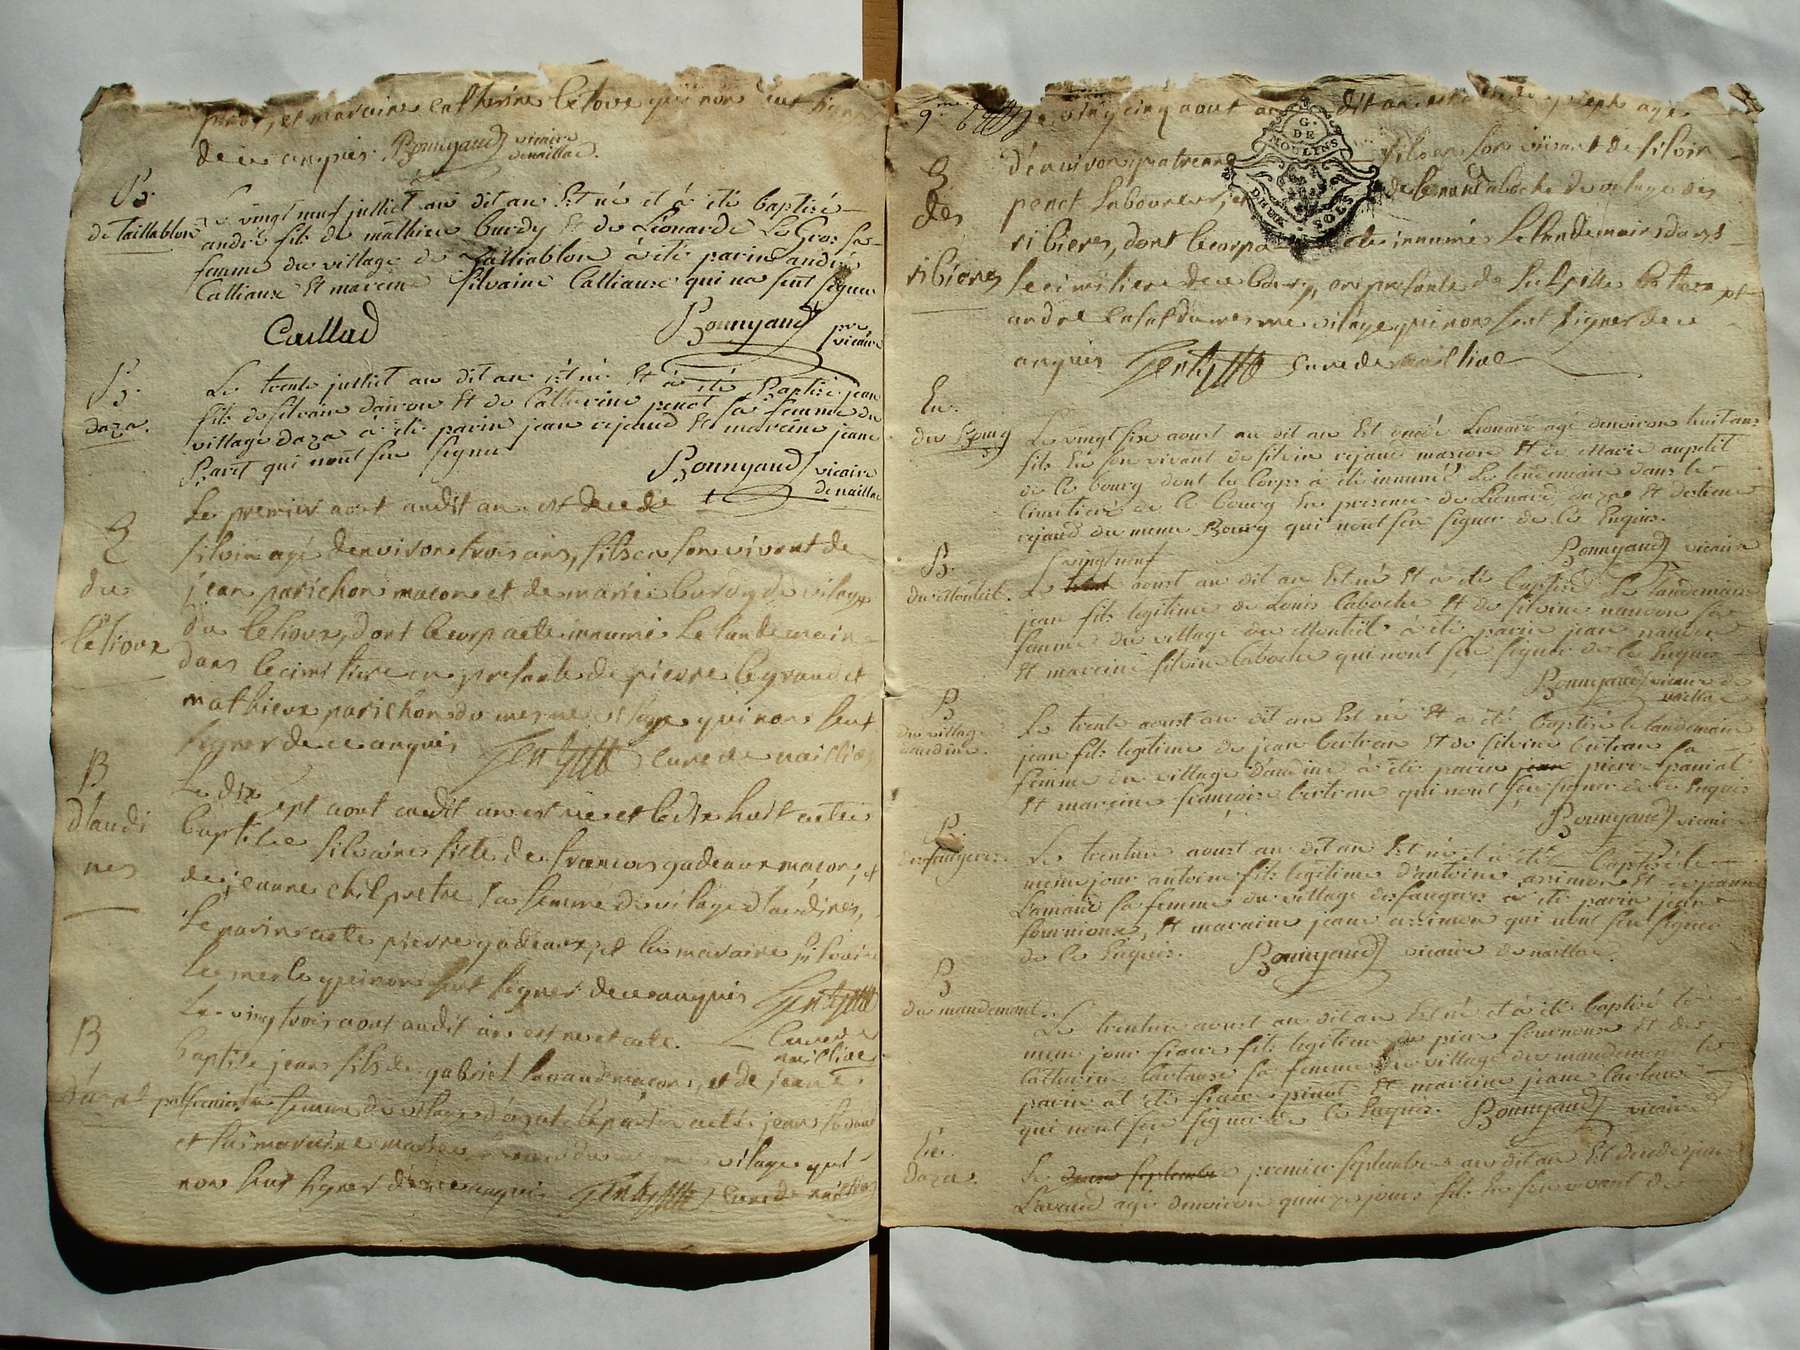 et maraine catherine
de ce anquis Bonnyaud vicaire
de naillac.
B:
de taillablon
Le vingt neuf jullict au dit an Est né et à été baptisé
andré fils de mathieu burdy Et de Lionarde Le Gros sa
femme du village de taillablon à été parin andré
Calliaux Et mareine silvaine Calliaux qui na sent signer
Caillad
Bonnyaud pre
vicaire
B:
daza.
Le trente jullict au dit an est né Et à été Baptisé jean
fils de silvain dairon Et de Catherine penot sa femme du
village daza à été parin jean rejaud Et mareine jeane
Paret qui nont seu signer
Bonnyaud vicaire
de naillac
Le premier aout audit an est decedé
silvin agé denviron trois ans, fils en son vivent de
du
jean parichon macon et de marie burdy du vilage
létioux
du letioux, dont le corp aeté innumé Le landemain
dans le cimetiere en presante de pierre legrand et
mathieux parichon du mesme vilage qui non seut
signer de ce anquis curé de nailliac
B
Le dix sept aout audit an est née et le dix huit aeté
daudi
nes
baptisée silvaine fille de francois gadeaux maçon, et
de jeanne chilpretre sa femme du vilage daudines,
le parin aeté pierre gadeaux, et la maraine silvaine
le merle qui non seut signer de ce anquis
Le vingtrois aout audit an est né et aeté
curé de
nailliac
B
baptisé jean fils de gabriel macon, et de jeane
femme du vilage le parin aeté jean
et la maraine vilage qui
non seut signer de ce anquis curé de nailliac
Le vingcinq aout au dit an
denviron quatre ans fils en son vivant de silvin
des
penot laboureur
ribieres
ribieres, dont le corp aeté innumé le landemain dans
le cimitiere de ce bourg, en presante de
andre du mesme vilage qui non seut signer de ce
anquis curé de nailliac
G.
DE
MOULINS
DEUX SOLS
En.
du Bourg
Le vingt six aoust au dit an Est décédé Lionard agé denviron huit ans
fils En son vivant de silvin rejaud masson Et de Marie aupetit
de ce bourg dont le corps à été innumé Le lendemain dans le
cimetiere de ce bourg En presence de Lionard dazae Et detiene
rejaud du meme Bourg qui nont seu signer de ce Enquis.
Bonnyaud vicaire
B.
du Monteil.
vingt neuf
Le aoust au dit an Est né Et à été baptisé Le landemain
jean fils legitime de Louis laboche Et de silvine naudon sa
femme du village du Monteil à été parin jean naudon
Et mareine silvine laboche qui nont seu signer de ce Enquis
Bonnyaud vicaire de
naillac
B
du village
daudine.
Le trente aoust au dit an Est né Et à été baptisé le landemain
jean fils legitime de jean bertran Et de silvine bertran sa
femme du village daudine à été parin jean pierre paniat
Et mareine françoise bertran qui nont seu signer de ce Enquis
Bonnyaud vicaire
B.
desfaugeres.
Le trentun aoust au dit an Est né et à été baptisé le
meme jour antoine fils legitime dantoine assimon Et de jeanne
Lamaud sa femme du village desfaugeres à été parin jean
fournioux, Et maraine jeane assimon qui nont seu signer
de ce Enquis. Bonnyaud vicaire de naillac.
B
du mandement.
Le trentun aoust au dit an Est né et à été baptisé le
meme jour fils legitime de piere fournoux Et de
catherine sa femme du village du mandement le
parin at été pinot Et mareine jeane
qui nont seu signer de ce Enquis. Bonnyaud vicaire
En.
Daza.
Le premier septembre au dit an Est décédé
Lavaud agé denviron quinze jours fils En son vivant de